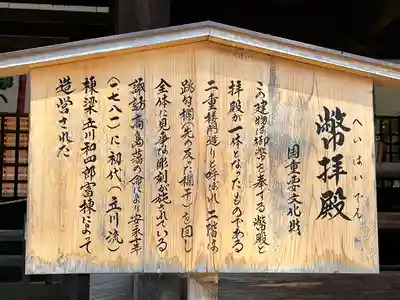 幣拝殿
へいはいでん
国重要文化財
この建物は御幣を奉る幣殿と
拝殿が一体となったものである
二重楼門造りと呼ばれ二階は
跳勾欄(先の反った欄干)を回し
全体に見事な彫刻が施されている
諏訪高島藩の命により安永十年
(一七八一)に初代(立川流)
棟梁立川和四郎富棟によって
造営された